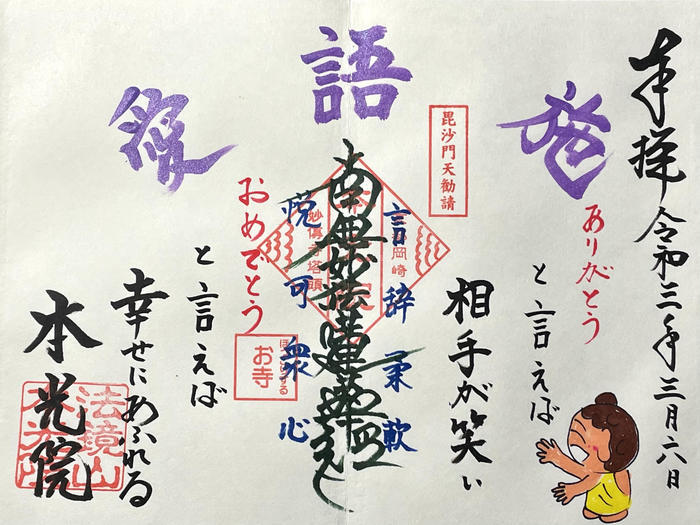 奉拝 令和三年三月六日
発
ありがとう
と言えば
相手が笑い
語
毘沙門天勧請
言辞柔軟
南無妙法蓮華経
岡崎
妙傳寺塔頭
悦可衆心
お寺
愛
おめでとう
と言えば
幸せにあふれる
本光院
法鏡山